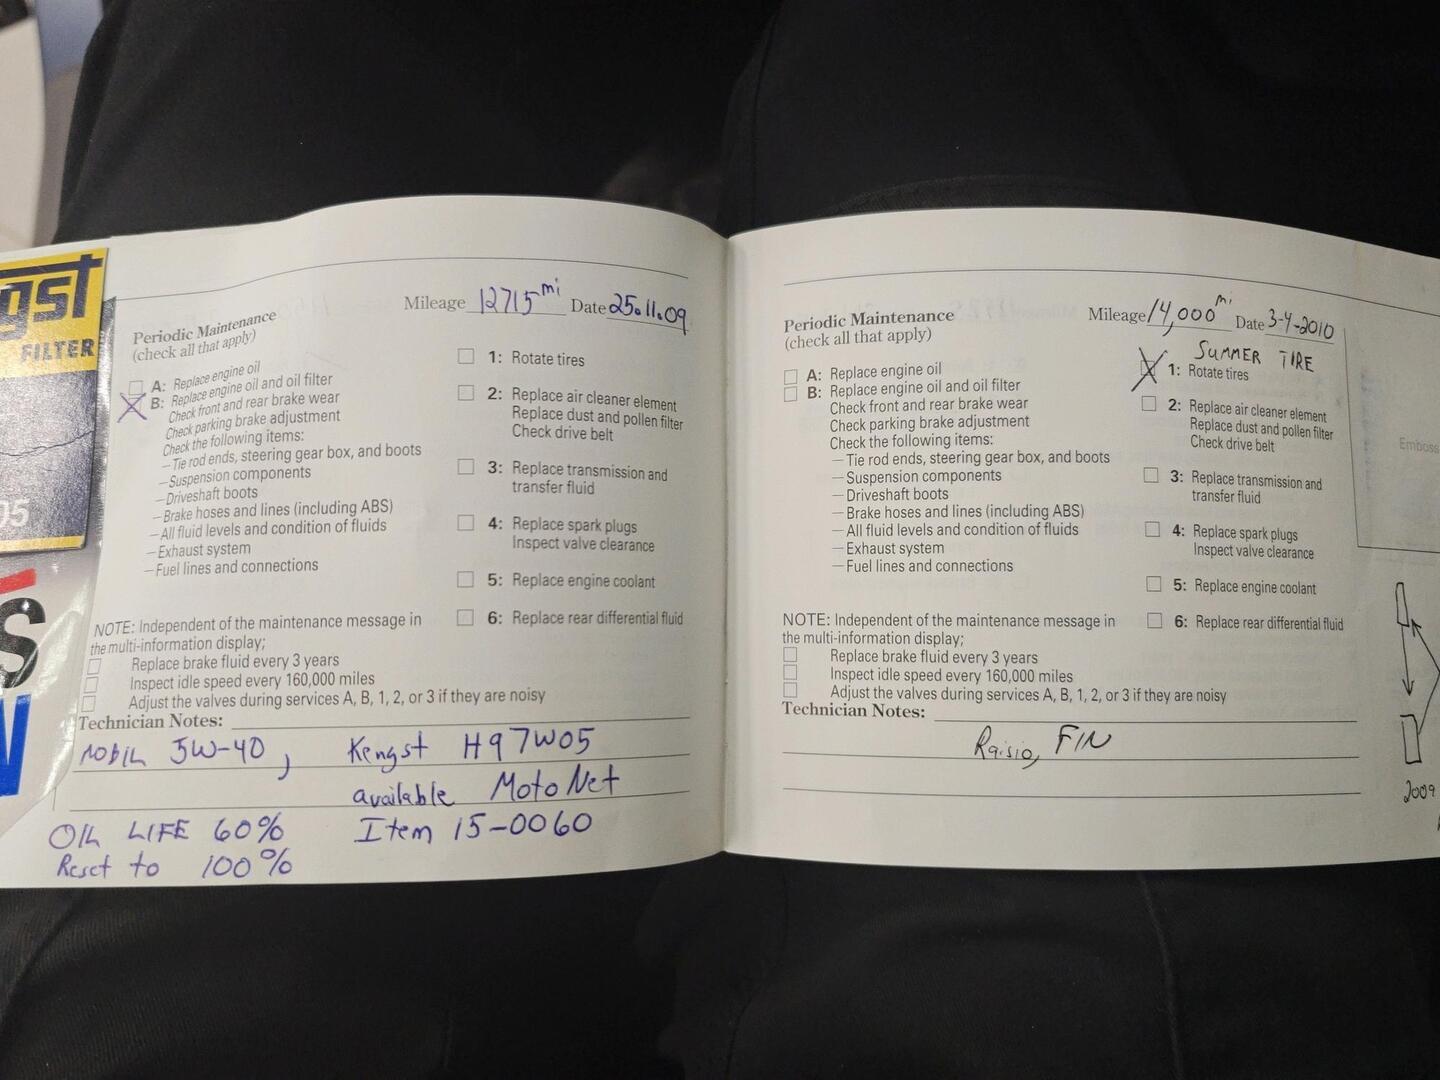 gst
FILTER
05
S
Mileage 12715 mi Date 25.11.09
Periodic Maintenance
(check all that apply)
A: Replace engine oil
B: Replace engine oil and oil filter
Check front and rear brake wear
Check parking brake adjustment
Check the following items:
–Tie rod ends, steering gear box, and boots
–Suspension components
–Driveshaft boots
–Brake hoses and lines (including ABS)
–All fluid levels and condition of fluids
–Exhaust system
–Fuel lines and connections
1: Rotate tires
2: Replace air cleaner element
Replace dust and pollen filter
Check drive belt
3: Replace transmission and
transfer fluid
4: Replace spark plugs
Inspect valve clearance
5: Replace engine coolant
6: Replace rear differential fluid
NOTE: Independent of the maintenance message in
the multi-information display;
Replace brake fluid every 3 years
Inspect idle speed every 160,000 miles
Adjust the valves during services A, B, 1, 2, or 3 if they are noisy
Technician Notes:
5W-40, Kengst H97W05
available MotoNet
OIL LIFE 60% Item 15-0060
Reset to 100%
Mileage 14,000 mi Date 3-4-2010
Periodic Maintenance
(check all that apply)
A: Replace engine oil
B: Replace engine oil and oil filter
Check front and rear brake wear
Check parking brake adjustment
Check the following items:
–Tie rod ends, steering gear box, and boots
–Suspension components
–Driveshaft boots
–Brake hoses and lines (including ABS)
–All fluid levels and condition of fluids
–Exhaust system
–Fuel lines and connections
SUMMER TIRE
1: Rotate tires
2: Replace air cleaner element
Replace dust and pollen filter
Check drive belt
3: Replace transmission and
transfer fluid
4: Replace spark plugs
Inspect valve clearance
5: Replace engine coolant
6: Replace rear differential fluid
NOTE: Independent of the maintenance message in
the multi-information display;
Replace brake fluid every 3 years
Inspect idle speed every 160,000 miles
Adjust the valves during services A, B, 1, 2, or 3 if they are noisy
Technician Notes:
Raisio, FIN
Emboss
2009